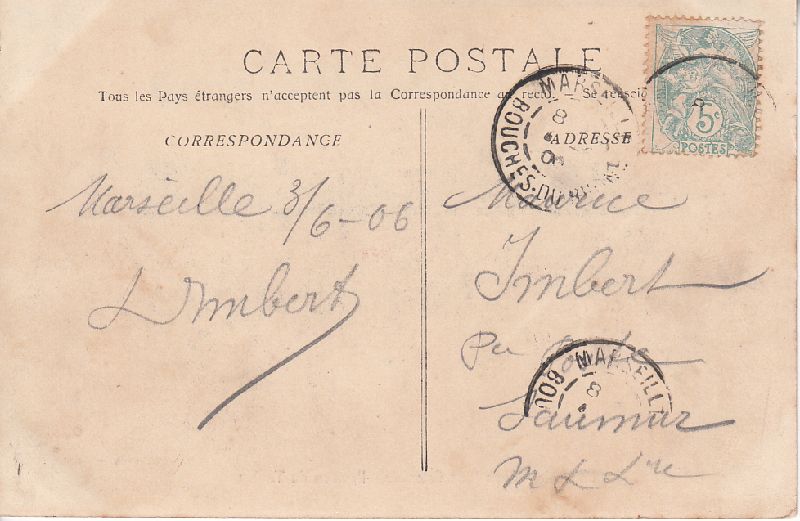 CARTE POSTALE
Tous les Pays étrangers n'acceptent pas la Correspondance au recto
CORRESPONDANCE
ADRESSE
5c
POSTES
MARSEILLE
BOUCHES-DU-RHONE
8
Marseille 3/6-06
L Imbert
Maurice
Imbert
Saumur
M & Lre
MARSEILL
BOU
8